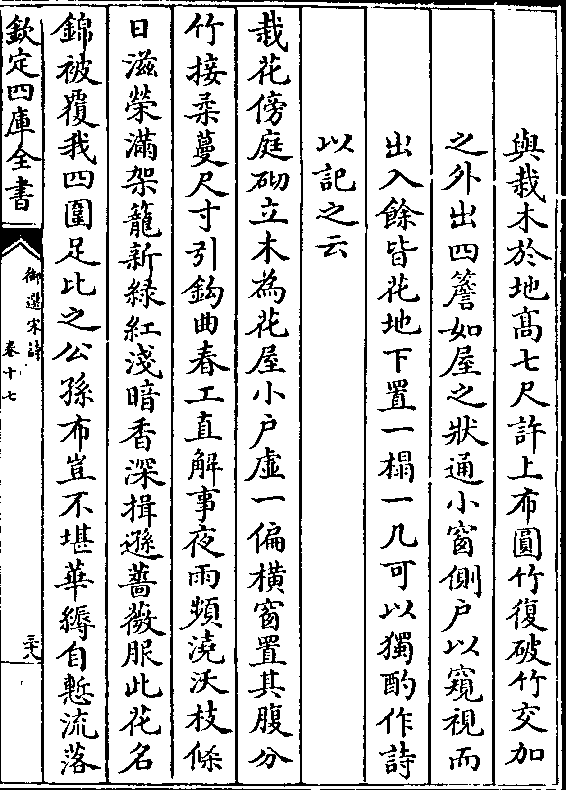 與栽木於地高七尺許上布圓竹復破竹交加
之外出四簷如屋之狀通小窗側户以窺視而
出入餘皆花地下置一榻一几可以獨酌作詩
以記之云
栽花傍庭砌立木為花屋小户虛一偏橫窗置其腹分
竹接柔蔓尺寸引鈎曲春工直解事夜雨頻澆沃枝條
日滋榮滿架籠新緑紅淺暗香深揖遜薔薇服此花名
錦被覆我四圍足比之公孫布豈不堪華縟自慙流落
欽定四庫全書
御選宋詩
卷十七
三六